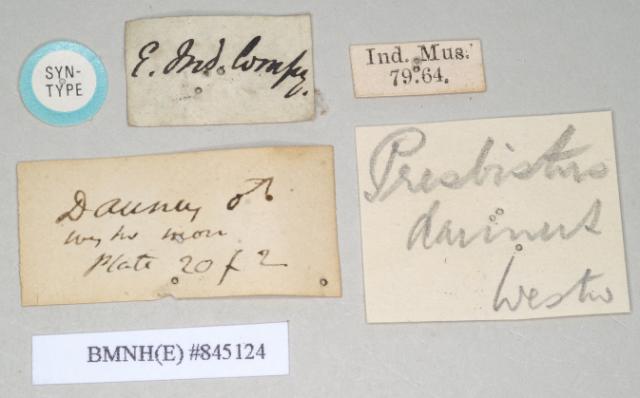 SYN-
TYPE
E. Ind. Compy.
Ind. Mus.
79.64.
Daunus ♂
westw mon
Plate 20 f 2
Presbistus
Westw
BMNH(E) #845124